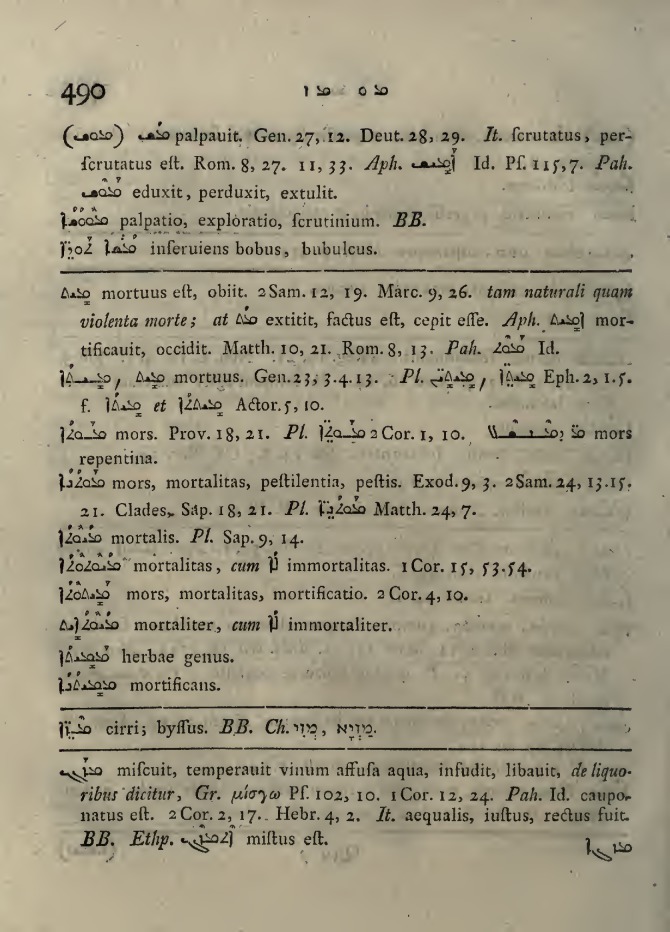 490 ܡܘ ܡܙ
(ܡܘܫ) ܡܫ palpauit. Gen. 27, 12. Deut. 28, 29. It. ſcrutatus, per-
ſcrutatus eſt. Rom. 8, 27. 11, 33. Aph. ܐܡܝܫ Id. Pſ. 115, 7. Pah.
eduxit, perduxit, extulit.
palpatio, exploratio, ſcrutinium. BB.
ܬܘܪ̈ܐ inſeruiens bobus, bubulcus.
ܡܝܬ mortuus eſt, obiit. 2 Sam. 12, 19. Marc. 9, 26. tam naturali quam
violenta morte; at extitit, factus eſt, cepit eſſe. Aph. ܐܡܝܬ mor-
tificauit, occidit. Matth. 10, 21. Rom. 8, 13. Pah. ܡܘܬ Id.
ܡܝܬܐ, ܡܝܬ mortuus. Gen. 23, 3. 4. 13. Pl. ܡܝ̈ܬܝܢ, ܡܝ̈ܬܐ Eph. 2, 1. 5.
f. ܡܝܬܐ et ܡܝܬܬܐ Actor. 5, 10.
ܡܘܬܐ mors. Prov. 18, 21. Pl. ܡܘ̈ܬܐ 2 Cor. 1, 10. mors
repentina.
ܡܘܬܢܐ mors, mortalitas, peſtilentia, peſtis. Exod. 9, 3. 2 Sam. 24, 13. 15.
21. Clades, Sap. 18, 21. Pl. ܡܘܬܢ̈ܐ Matth. 24, 7.
ܡܝܘܬܐ mortalis. Pl. Sap. 9, 14.
ܡܝܘܬܘܬܐ mortalitas, cum ܠܐ immortalitas. 1 Cor. 15, 53. 54.
ܡܝܬܘܬܐ mors, mortalitas, mortificatio. 2 Cor. 4, 10.
ܡܝܘܬܐܝܬ mortaliter, cum ܠܐ immortaliter.
herbae genus.
ܡܡܝܬܢܐ mortificans.
ܡܙ̈ܐ cirri; byſſus. BB. Ch. מְזֵי, מַזְיָא.
ܡܙܓ miſcuit, temperauit vinum affuſa aqua, infudit, libauit, de liquo-
ribus dicitur, Gr. μίσγω Pſ. 102, 10. 1 Cor. 12, 24. Pah. Id. caupo-
natus eſt. 2 Cor. 2, 17. Hebr. 4, 2. It. aequalis, iuſtus, rectus fuit.
BB. Ethp. ܐܬܡܙܓ miſtus eſt.
ܡܙܓܐ